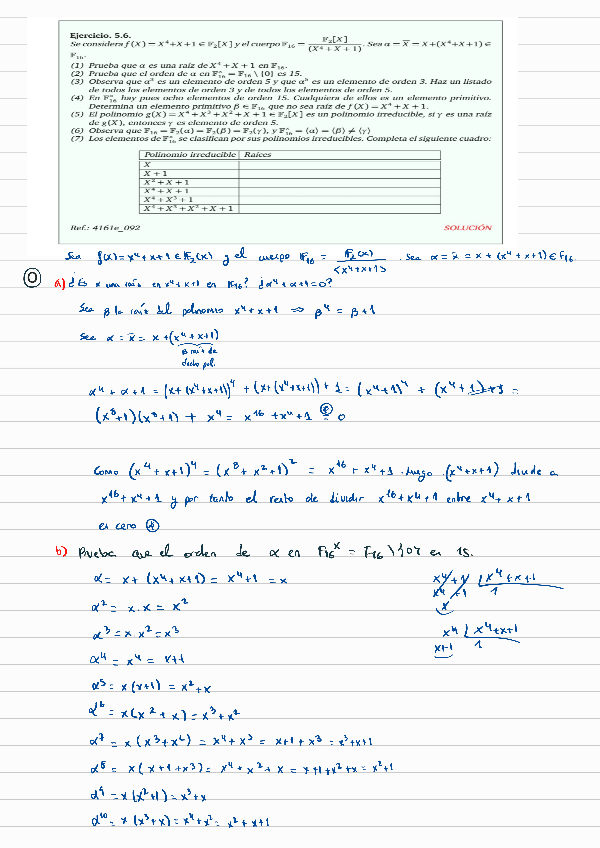 Ejercicio. 5.6.
Se considera f(X) = X⁴+X+1 ∈ 𝔽₂[X] y el cuerpo 𝔽₁₆ = 𝔽₂[X]/(X⁴ + X + 1). Sea α = X̄ = X+(X⁴+X+1) ∈
𝔽₁₆.
(1) Prueba que α es una raíz de X⁴ + X + 1 en 𝔽₁₆.
(2) Prueba que el orden de α en 𝔽*₁₆ = 𝔽₁₆ \ {0} es 15.
(3) Observa que α³ es un elemento de orden 5 y que α⁵ es un elemento de orden 3. Haz un listado
de todos los elementos de orden 3 y de todos los elementos de orden 5.
(4) En 𝔽*₁₆ hay pues ocho elementos de orden 15. Cualquiera de ellos es un elemento primitivo.
Determina un elemento primitivo β ∈ 𝔽₁₆ que no sea raíz de f(X) = X⁴ + X + 1.
(5) El polinomio g(X) = X⁴ + X³ + X² + X + 1 ∈ 𝔽₂[X] es un polinomio irreducible, si γ es una raíz
de g(X), entonces γ es elemento de orden 5.
(6) Observa que 𝔽₁₆ = 𝔽₂(α) = 𝔽₂(β) = 𝔽₂(γ), y 𝔽*₁₆ = ⟨α⟩ = ⟨β⟩ ≠ ⟨γ⟩
(7) Los elementos de 𝔽*₁₆ se clasifican por sus polinomios irreducibles. Completa el siguiente cuadro:
Polinomio irreducible Raíces
X
X + 1
X² + X + 1
X⁴ + X + 1
X⁴ + X³ + 1
X⁴ + X³ + X² + X + 1
Ref.: 4161e_092 SOLUCIÓN
Sea f(x) = x⁴+x+1 ∈ F₂(x) y el cuerpo F₁₆ = F₂(x)/<x⁴+x+1>. Sea α = x̄ = x + (x⁴+x+1) ∈ F₁₆.
a) ¿Es α una raíz en x⁴+x+1 en F₁₆? ¿α⁴+α+1=0?
Sea β la raíz del polinomio x⁴+x+1 ⇒ β⁴ = β+1
Sea α = x̄ = x+(x⁴+x+1)
β raíz de
dicho pol.
α⁴ + α + 1 = (x+(x⁴+x+1))⁴ + (x+(x⁴+x+1)) + 1 = (x⁴+1)⁴ + (x⁴+1)+1 =
(x⁸+1)(x⁸+1) + x⁴ = x¹⁶ + x⁴ + 1 = 0
Como (x⁴+x+1)⁴ = (x⁸+x²+1)² = x¹⁶ + x⁴ + 1. Luego (x⁴+x+1) divide a
x¹⁶+x⁴+1 y por tanto el resto de dividir x¹⁶+x⁴+1 entre x⁴+x+1
es cero
b) Prueba que el orden de α en F₁₆ˣ = F₁₆\{0} es 15.
α = x + (x⁴+x+1) = x⁴+1 = x
x⁴+1 | x⁴+x+1
x⁴+1 1
x
α² = x·x = x²
α³ = x·x² = x³
x⁴ | x⁴+x+1
x+1 1
α⁴ = x⁴ = x+1
α⁵ = x(x+1) = x²+x
α⁶ = x(x²+x) = x³+x²
α⁷ = x(x³+x²) = x⁴+x³ = x+1+x³ = x³+x+1
α⁸ = x(x+1+x³) = x⁴+x²+x = x+1+x²+x = x²+1
α⁹ = x(x²+1) = x³+x
α¹⁰ = x(x³+x) = x⁴+x² = x²+x+1